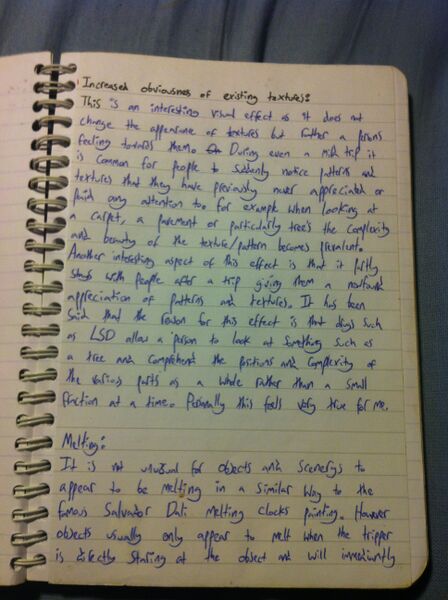 Increased obviousness of existing textures:
This is an interesting visual effect as it does not
change the appearance of textures but rather a persons
feeling towards them. During even a mild trip it
is common for people to suddenly notice patterns and
textures that they have previously never appreciated or
paid any attention to. for example when looking at
a carpet, a pavement or particularly tree's the complexity
and beauty of the texture/pattern becomes prevalent.
Another interesting aspect of this effect is that it partly
stays with people after a trip giving them a newfound
appreciation of patterns and textures. It has been
said that the reason for this effect is that drugs such
as LSD allow a person to look at something such as
a tree and comprehend the positions and complexity of
the various parts as a whole rather than a small
fraction at a time. Personally this feels very true for me.
Melting:
It is not unusual for objects and scenerys to
appear to be melting in a similar way to the
famous Salvador Dali melting clocks painting. However
objects usually only appear to melt when the tripper
is directly staring at the object and will immediently